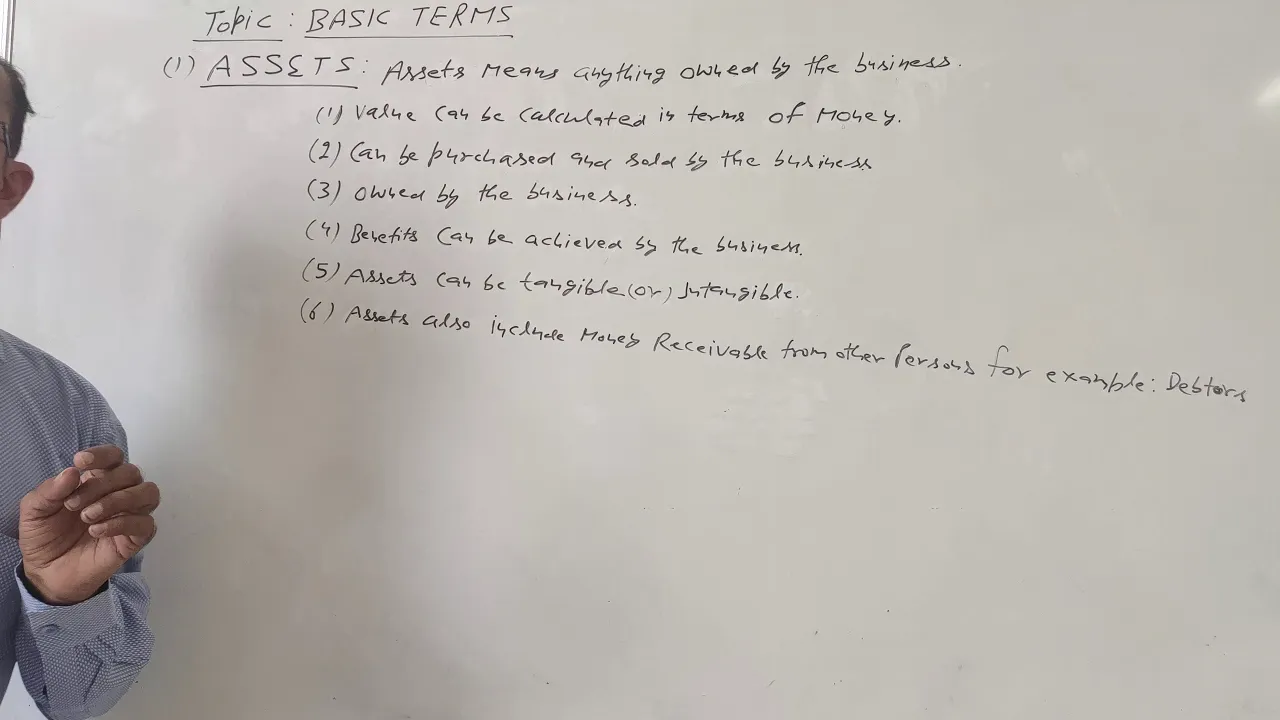 Topic : BASIC TERMS
(1) ASSETS : Assets Means anything owned by the business.
(1) Value can be calculated in terms of Money.
(2) Can be purchased and sold by the business
(3) Owned by the business.
(4) Benefits can be achieved by the business.
(5) Assets can be tangible (or) Intangible.
(6) Assets also include Money Receivable from other Persons for example: Debtors